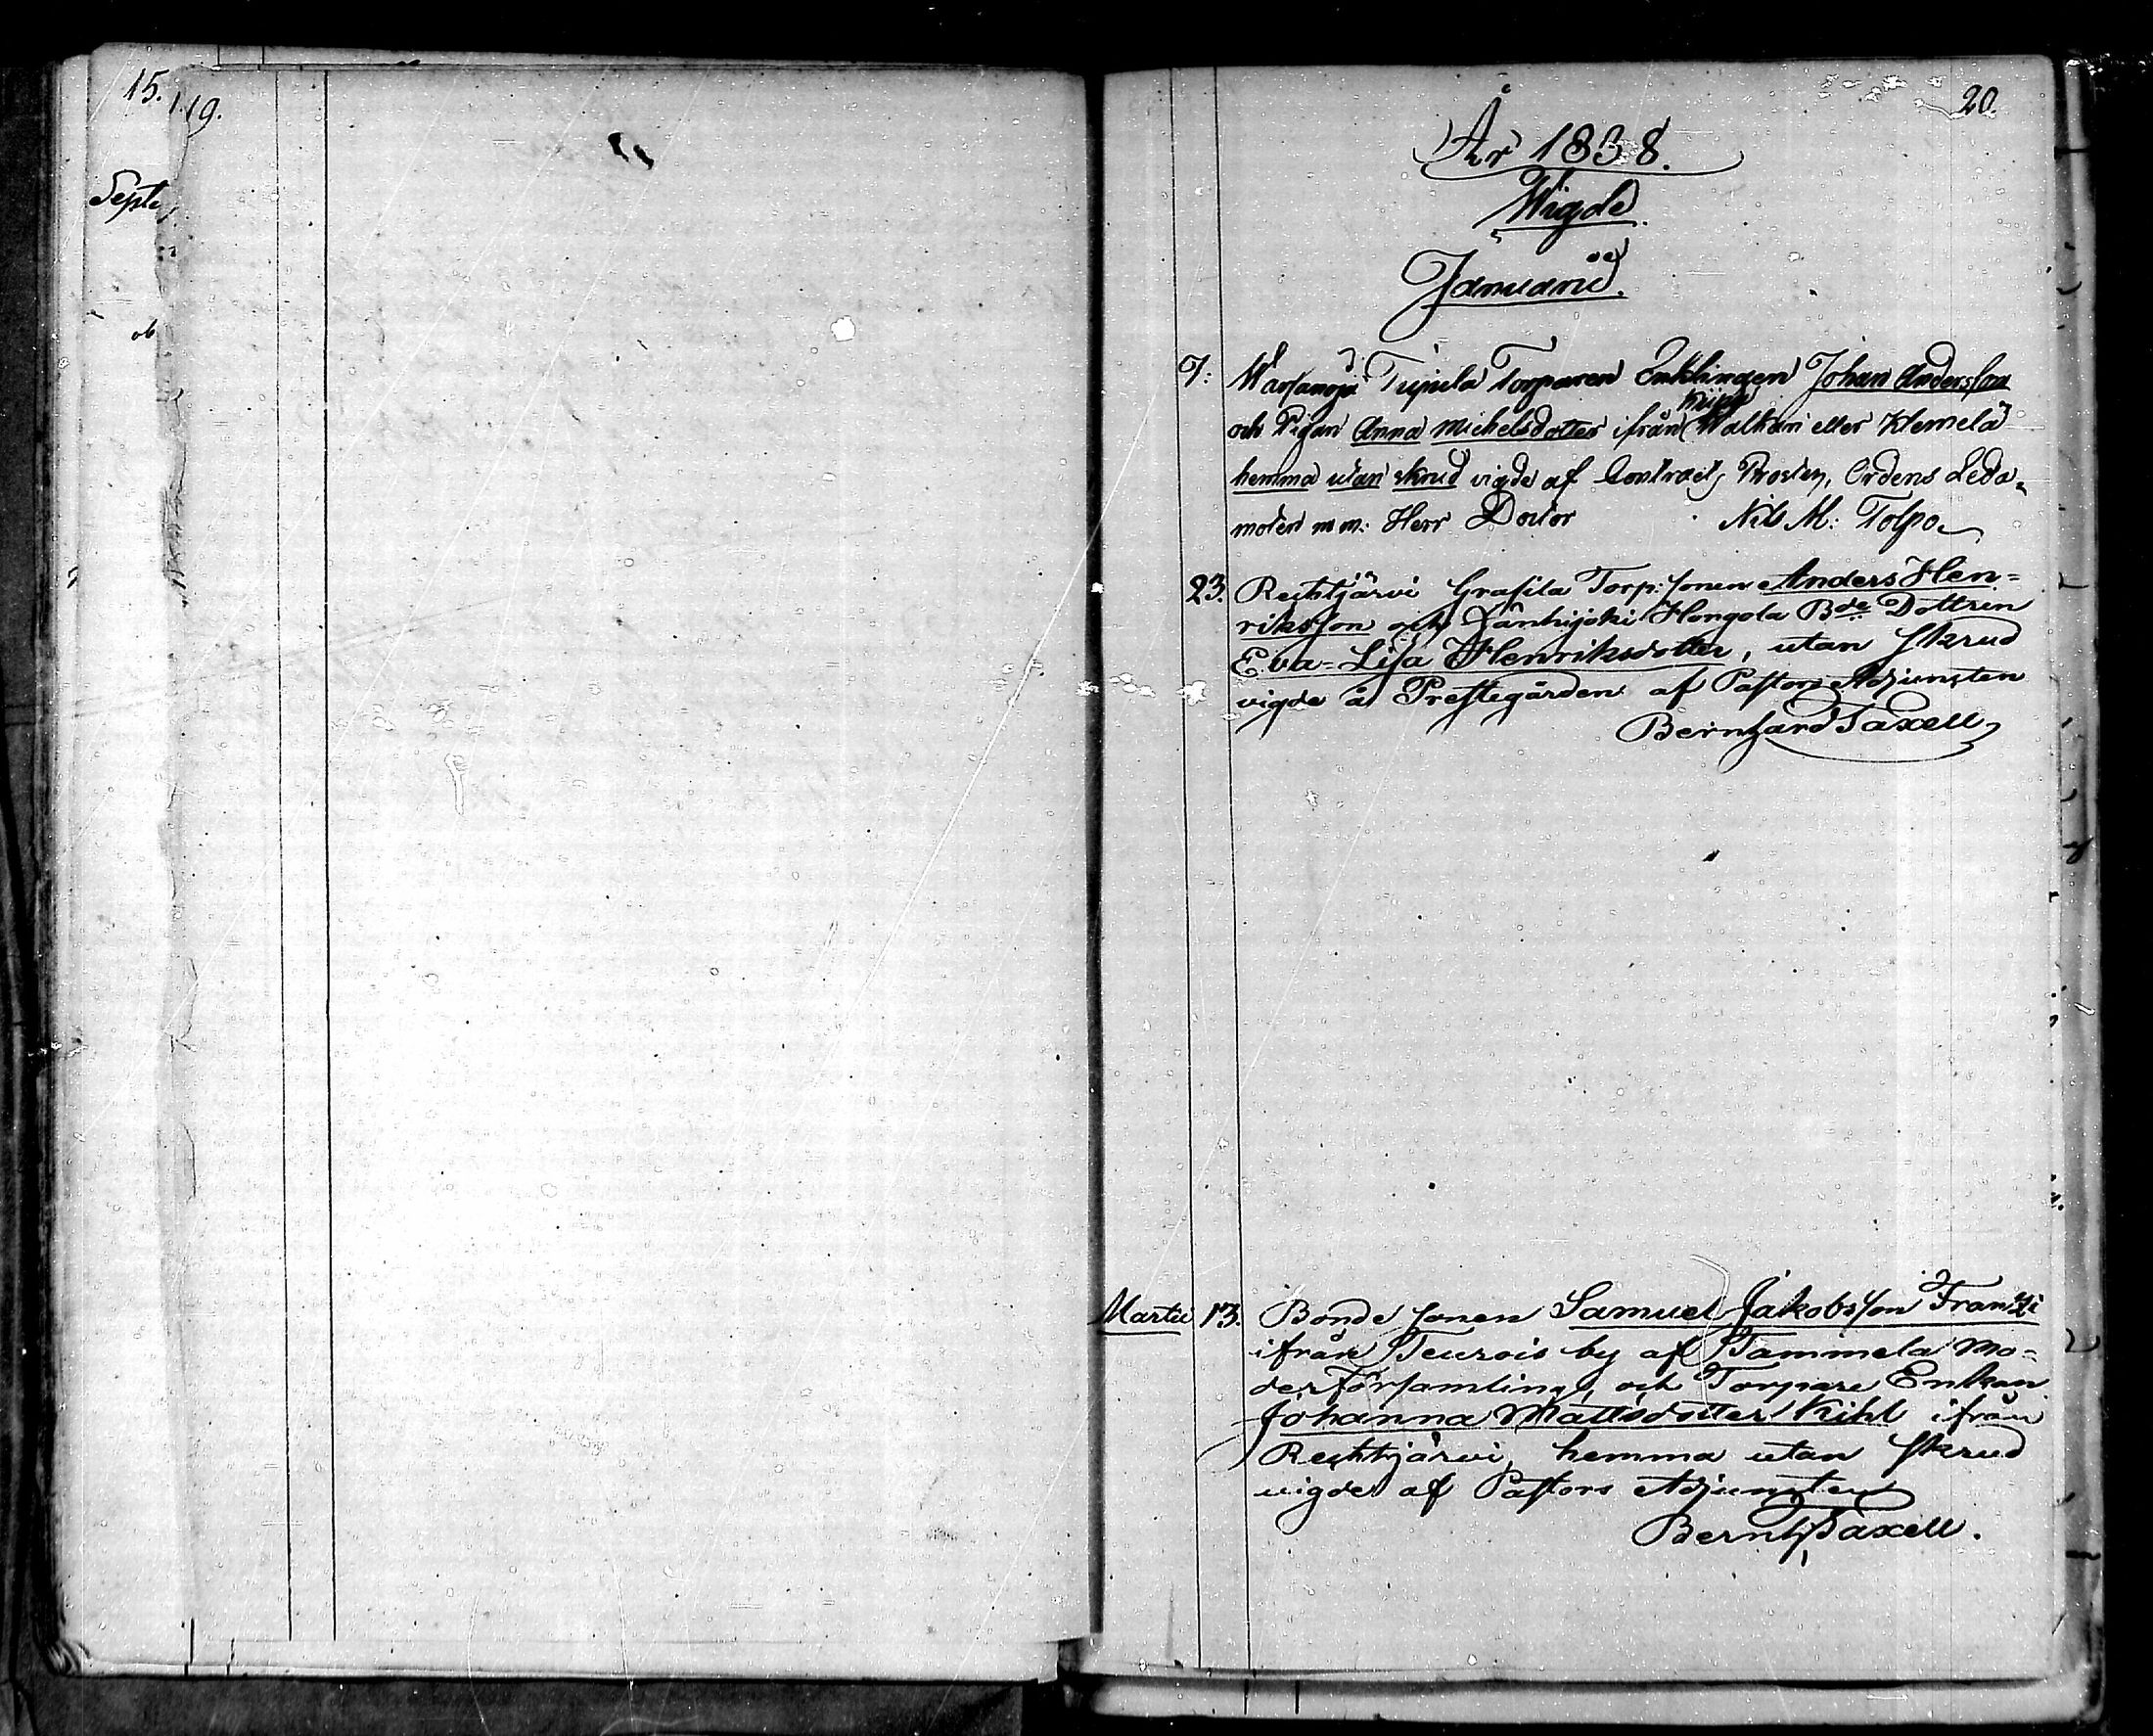 15.
19.
Septe
ob
20.
År 1838.
Wigde
Januarii.
7: Warsanoja Tupula Torparen Enklingen Johan Andersson
och Pigan Anna Michelsdotter ifrån Walkiri eller Klemelä
hemma utan skrud vigde af Contracts Prosten, Ordens Leda=
moten m.m. Herr Doctor Nils M: Tolpo
23. Rechtjärvi Grasila Torp: sonen Anders Hen=
riksson och Jänhijoki Hongola Bde Dottren
Eva=Lisa Henriksdotter, utan skrud
vigde å Prestegården af Pastors Adjuncten
Bernhard Taxell
Martii 13. Bonde sonen Samuel Jakobsson Frantzi
ifrån Teurois by af Tammela Mo=
derförsamling, och Torpare Enkan
Johanna Mattsdotter Kihl ifrån
Rechtjärvi, hemma utan skrud
vigde af Pastors Adjuncten
Bernh Taxell.